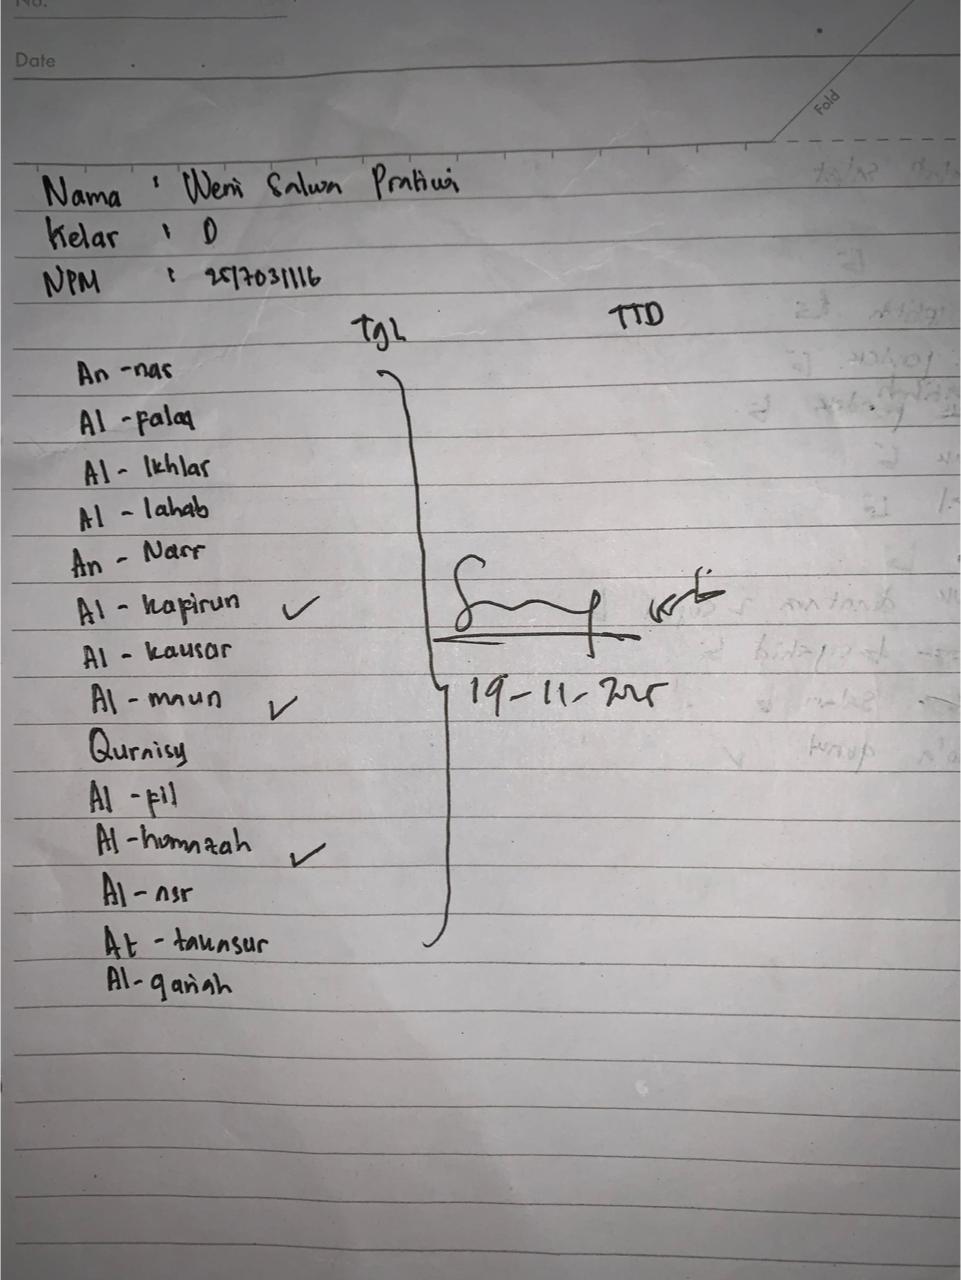 No.
Date
Fold
Nama : Weni Salwa Pratiwi
Kelas : D
NPM : 2517031116
TgL TTD
An - nas
Al - falaq
Al - Ikhlas
Al - lahab
An - Nasr
Al - kafirun ✓
Al - kausar
Al - maun ✓
19-11-2025
Quraisy
Al - fil
Al - humazah ✓
Al - asr
At - takasur
Al - qariah